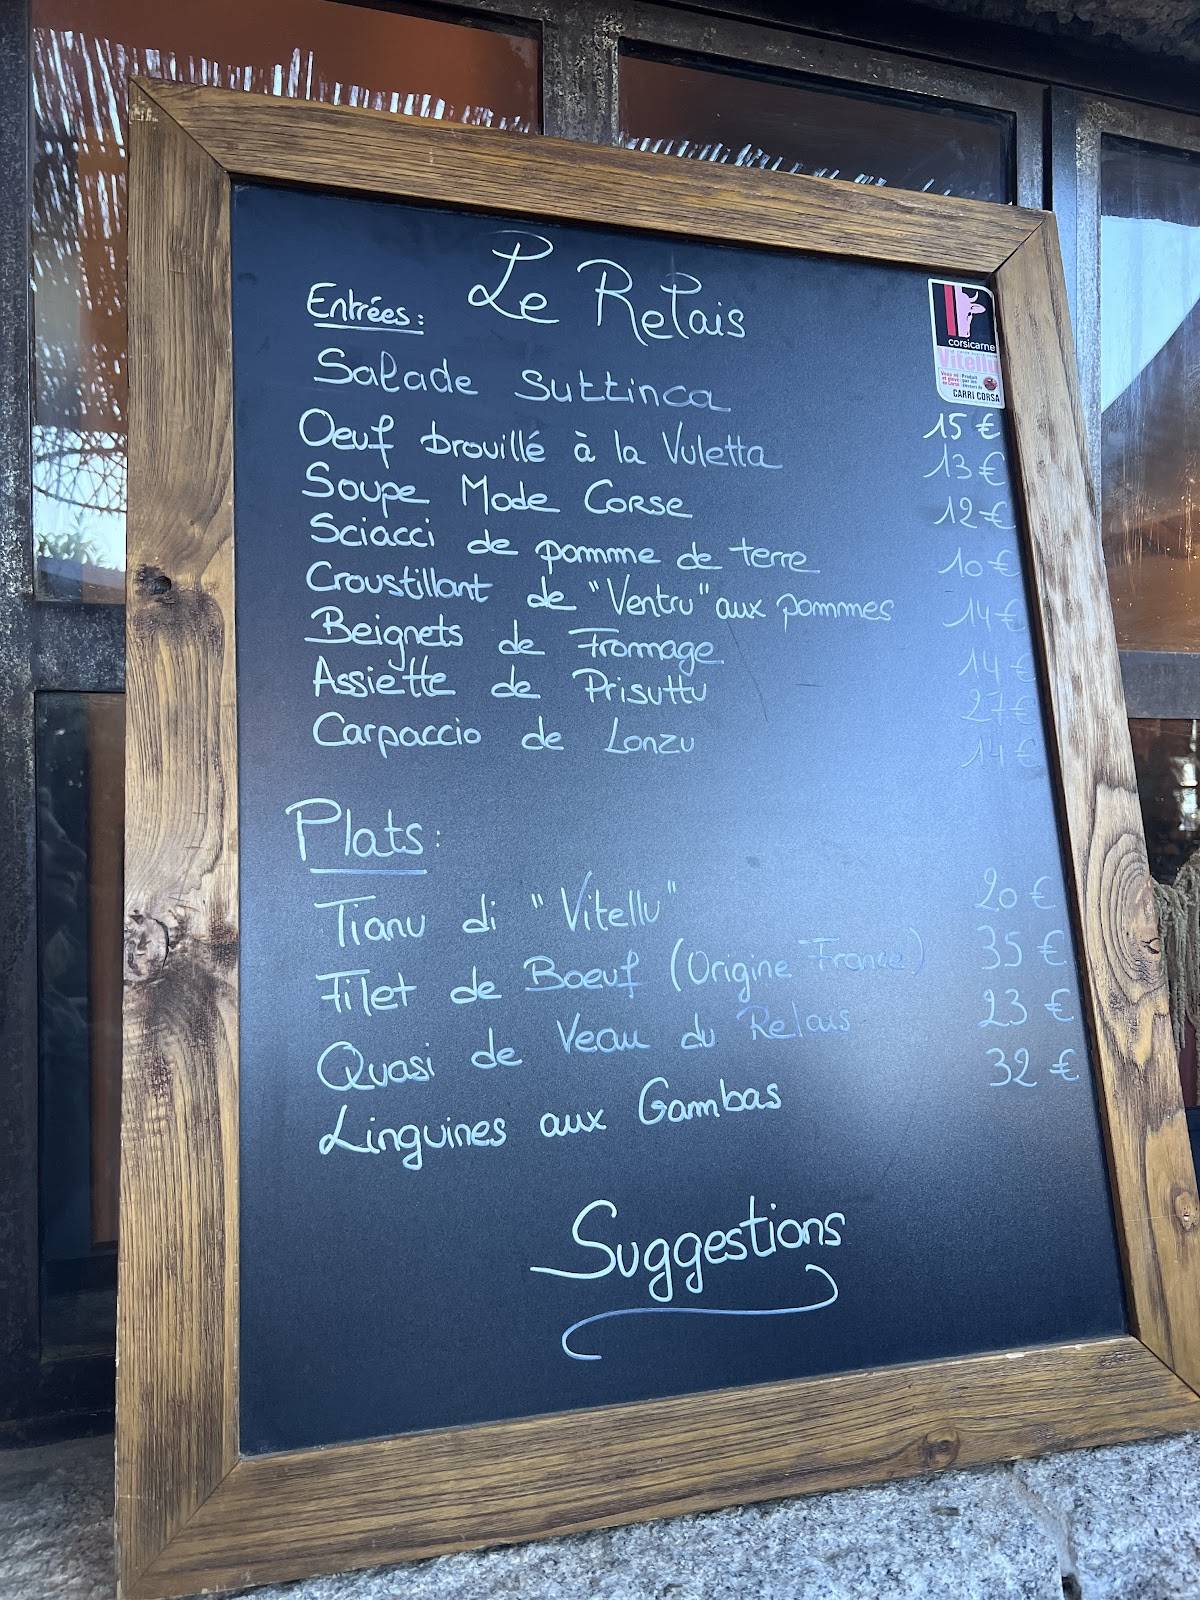 Le Relais
Entrées:
Salade Suttinca 15 €
Oeuf brouillé à la Vuletta 13 €
Soupe Mode Corse 12 €
Sciacci de pomme de terre 10 €
Croustillant de "Ventru" aux pommes 14 €
Beignets de Fromage 14 €
Assiette de Prisuttu 27 €
Carpaccio de Lonzu 14 €
Plats:
Tianu di "Vitellu" 20 €
Filet de Boeuf (Origine France) 35 €
Quasi de Veau du Relais 23 €
Linguines aux Gambas 32 €
Suggestions
corsicarne
Vitellu
CARRI CORSA